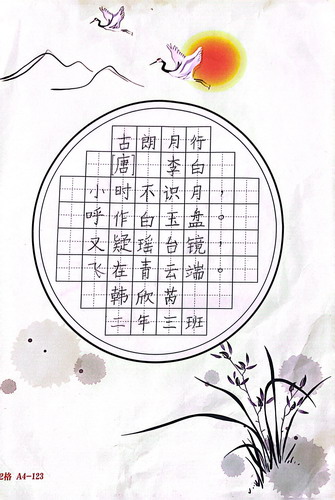 古朗月行
[唐] 李白
小时不识月，
呼作白玉盘。
又疑瑶台镜，
飞在青云端。
韩欣芮
二年三班
格 A4-123